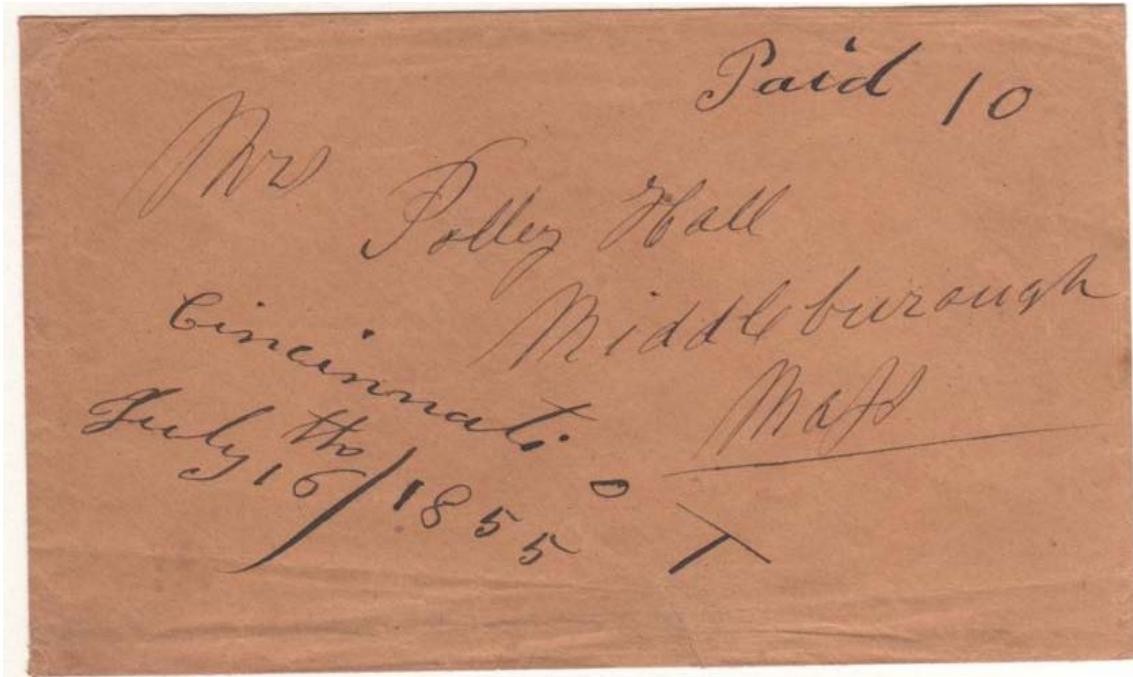 Paid 10
Mrs
Polley Hall
Middleburough
Mass
Cincinnati O T
July 16th/1855